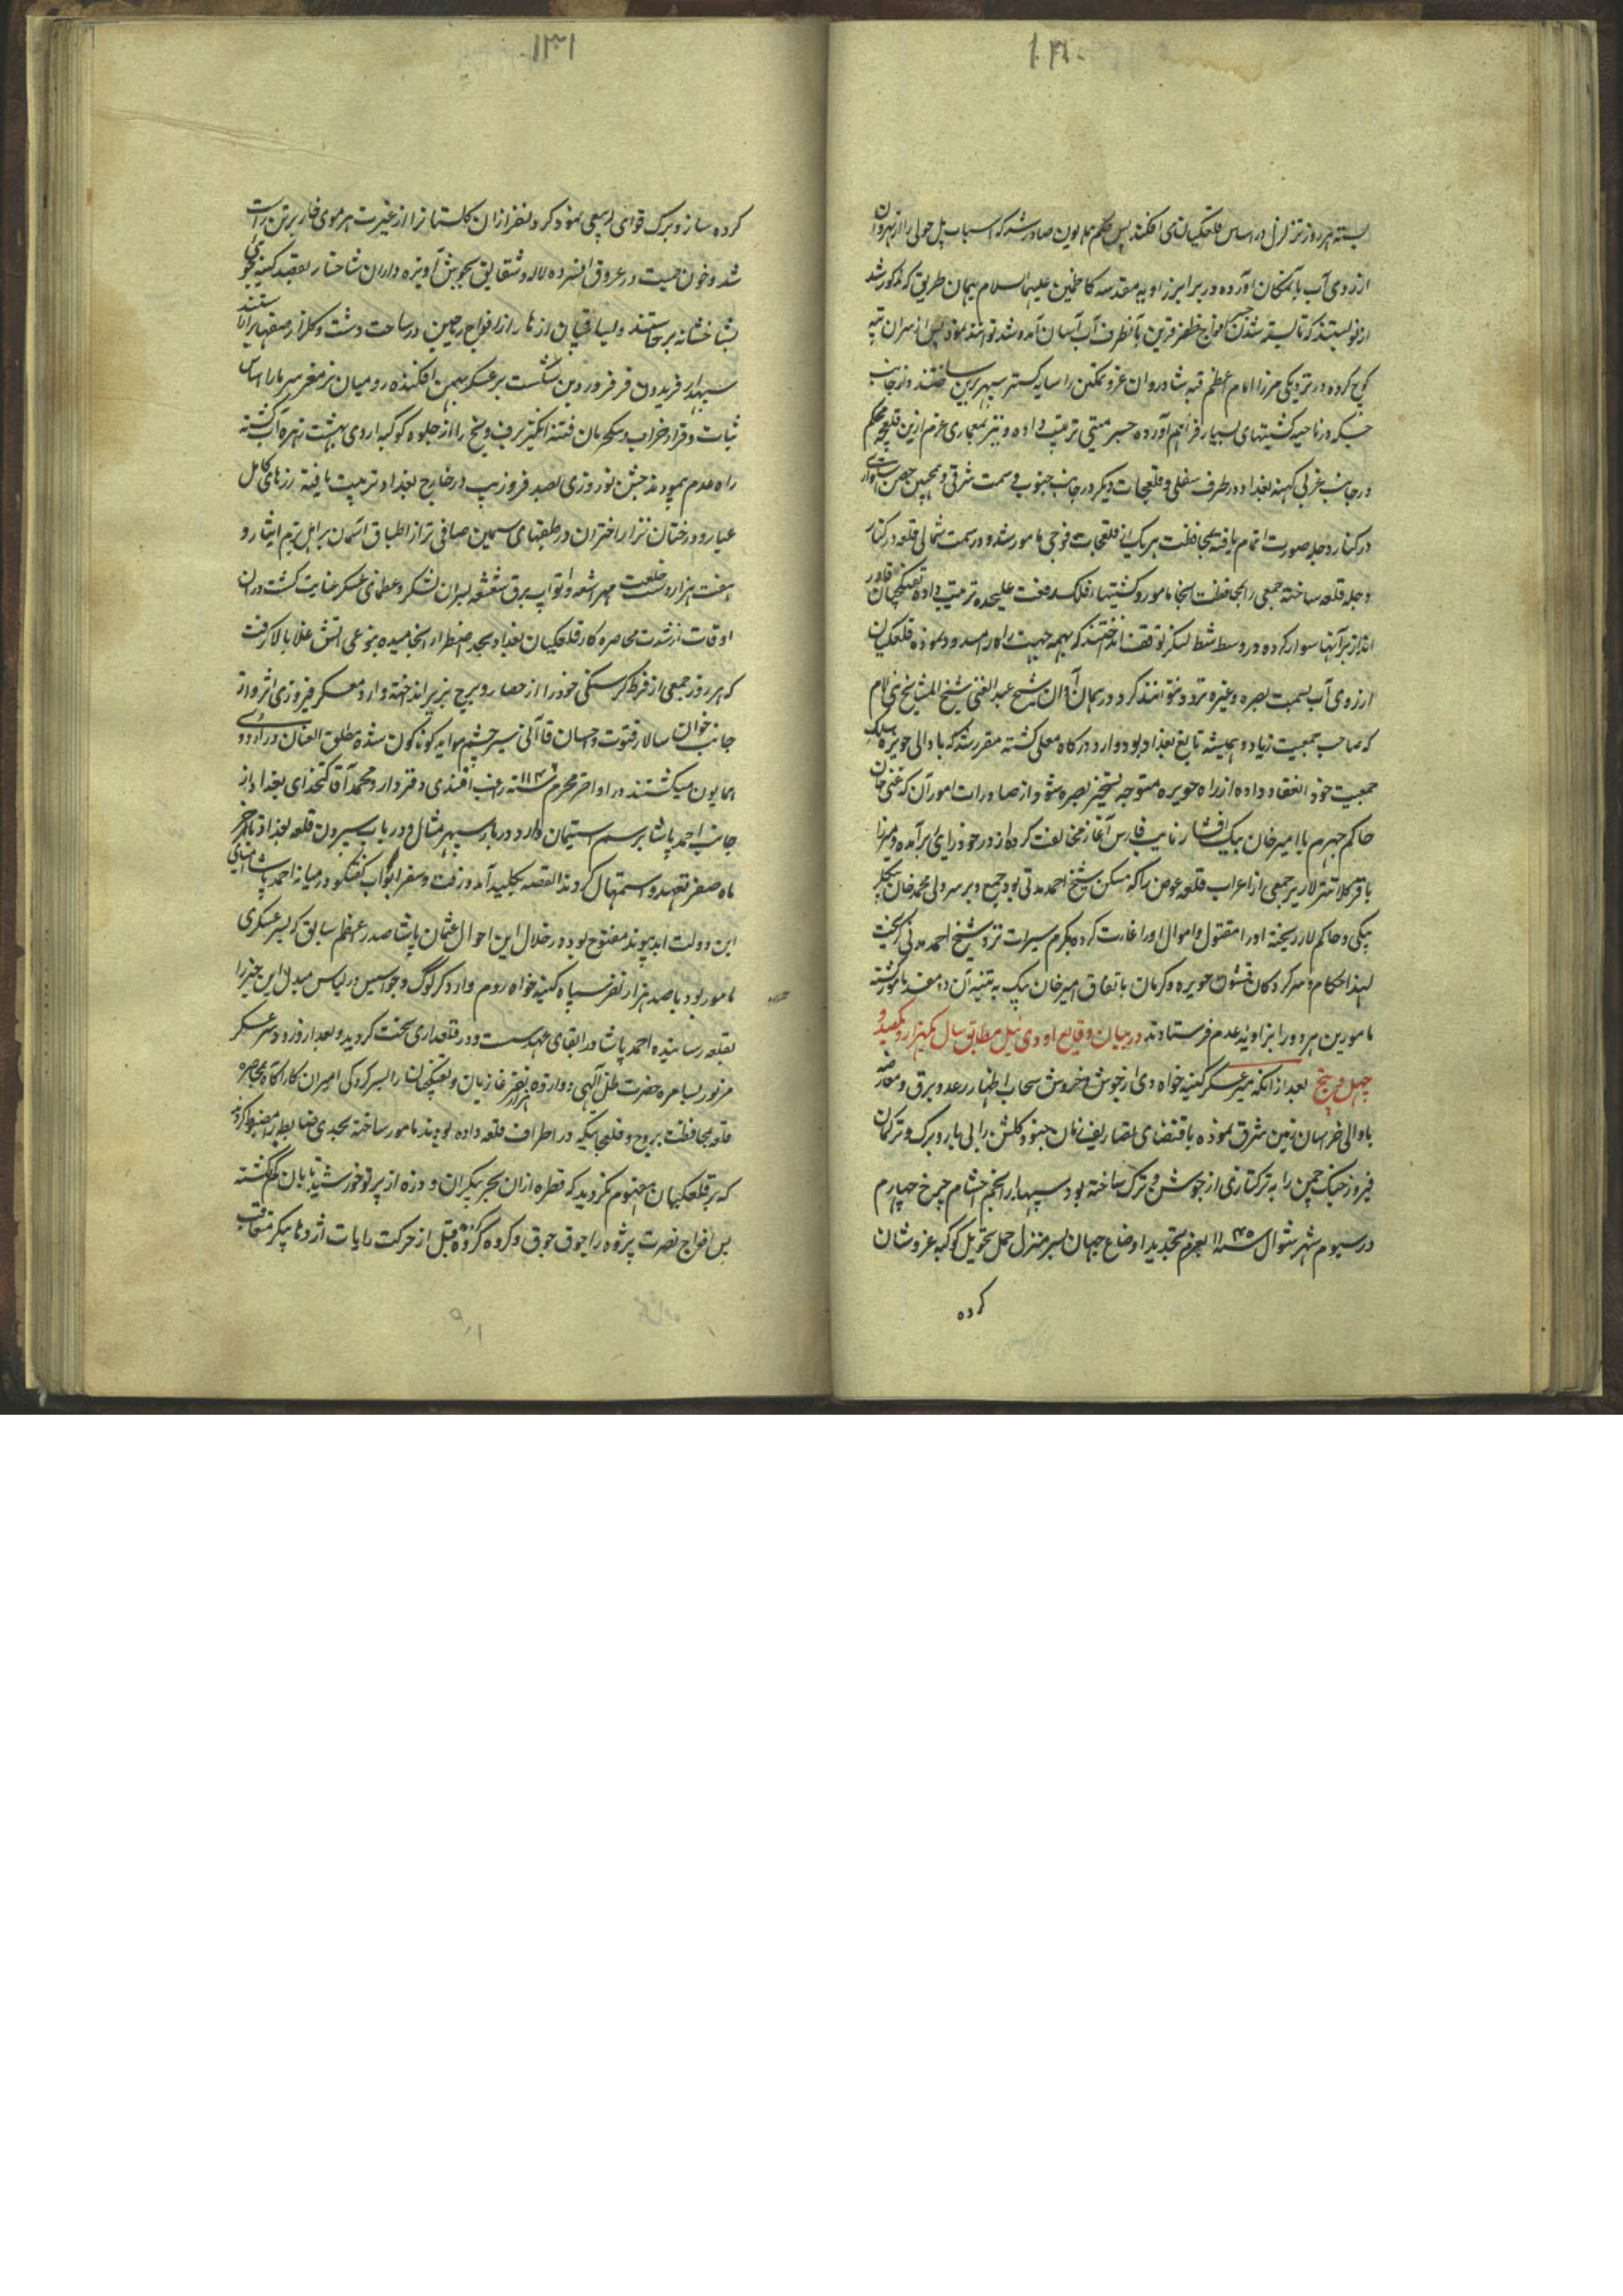 ۱۳۰
بسته هر روز تزلزل در اساس قلعکیان می افکندند پس حکم همایون صادر شد که اسباب پل چولی را از نهروان
از روی آب بآنمکان آورده در برابر زاویه مقدسه کاظمین علیهما السلام بهمان طریق که مذکور شد
از نو بستند که تا بسته شدن جسر افواج ظفر قرین بآنطرف آب آسان آمد و شد توانند نمود پس از سران تپه
کوچ کرده در نزدیکی مزار امام اعظم قبه شادروان عز و تمکین را سایه گستر سپهر برین ساختند و از جانب
در ناحیه کشتیهای بسیار فراهم آورده جسر متینی ترتیب داده و نیز بمعماری عزم ازین قلعچه محکم
در جانب غربی کهنه بغداد در طرف سفلی و قلعجات دیگر در جانب جنوب و سمت شرقی و همچنین حصن
در کنار دجله صورت اتمام یافته بمحافظت هر یک از قلعجات فوجی مامور شد و در سمت شمالی قلعه در کنار
دجله قلعه ساخته جمعی را بمحافظت آنجا مامور و کشتیها فلک رفعت علیحده ترتیب داده تفنگچیان قادر
انداز برآنها سوار کرده در وسط شط لنگر توقف انداختند که بهمه جهت راه را مسدود نموده قلعکیان
از روی آب بسمت بصره و غیره تردد نتوانند کرد و در همان آوان شیخ عبد الغنی شیخ المشایخ بنی لام
که صاحب جمعیت زیاد و همیشه تابع بغداد بود وارد درگاه معلی گشته مقرر شد که با والی حویزه سلک
جمعیت خود انعقاد داده از راه حویزه متوجه تسخیر بصره شود از صادرات امور آن که غنی خان
حاکم جهرم با امیر خان بیک افشار نایب فارس آغاز مخالفت کرده از در خود رایی برآمده و میرزا
باقر کلانتر لار نیز جمعی از اعراب قلعه عوض را که مسکن شیخ احمد مدنی بود جمع و بر سر ولی محمد خان بیکلر
بیکی و حاکم لار ریخته او را مقتول و اموال او را غارت کرده بگرم سیرات نزد شیخ احمد مدنی گریخت
لهذا حکام و سر کردگان قشون حویزه و کرمان باتفاق امیر خان بیک به تنبیه آن دو مفسد مامور گشته
مامورین هر دو را بزاویه عدم فرستادند در بیان وقایع اودی ئیل مطابق سال یکهزار و یکصد و
چهل و پنج بعد از آنکه میر عسکر کینه خواه دی از جوش و خروش سحاب اظهار رعد و برق و معارضه
با والی خراسان زمین شرق نموده باقتضای تصاریف زمان جنود گلشن را بی بار و برگ و ترکان
فیروز جنگ چمن را به ترکتازی از جوشن و ترک ساخته بود سپهدار انجم احتشام چرخ چهارم
در سیوم شهر شوال سنه ۱۱۴۵ بعزم تجدید اوضاع جهان بسر منزل حمل تحویل کوکبه عز و شان
کرده
۱۳۱
کرده ساز و برگ قوای ربیعی نمود گرد لنفر ازان گلستانرا از غیرت هر موی خار بر تن راست
شد و خون حمیت در عروق افسرده لاله و شقایق بجوش آویزه داران شاخسار بقصد کینه جوئی
بشاخشانه برخاستند و یساقیان ازهار از افواج ریاحین در ساحت دشت و گلزار صفها آراستند
سپهدار فریدون فر فروردین شکست بر عسکر بهمن افکنده رومیان نرمغز سرما را اساس
ثبات و قرار خراب و سکربان فتنه انگیز برف و یخ را از جلوه کوکبه اردی بهشت زهره آب گشته
راه عدم پیمودند جشن نوروزی بصد فر و زیب در خارج بغداد ترتیب یافته زرهای کامل
عیار و درخشان تر از اختران در طبقهای سیمین صافی تر از اطباق آسمان بر اهل بزم ایثار و
هفت هزار دست خلعت مهر شعه و اثواب برق شعشعه بسران لشکر و عظمای عسکر عنایت گشت در آن
اوقات از شدت محاصره کار قلعکیان بغداد بحد اضطرار انجامیده بنوعی آتش غلا بالا گرفت
که هر روز جمعی از فرط گرسنگی خود را از حصار و بروج بزیر انداخته وارد معسکر فیروزی اثر و از
جانب خوان سالار فتوت و احسان قاآنی سیر چشم موایه گوناگون شده مطلق العنان در اردوی
همایون میگشتند در اواخر محرم سنه ۱۱۴۶ راغب افندی دفتردار و محمد آقا کتخدای بغداد از
جانب احمد پاشا برسم استیمان وارد دربار سپهر مثال و در باب سپردن قلعه بغداد تا آخر
ماه صفر تعهد و استمهال کردند القصه بکلید آمد و رفت و سفرا ابواب گفتگو در میانه احمد پاشا و امنای
این دولت ابد پیوند مفتوح بود در خلال این احوال عثمان پاشا صدر اعظم سابق که بسر عسکری
مامور بود با صد هزار نفر سپاه کینه خواه روم وارد کرکوک و جواسیس در لباس مبدل این خبر را
بقلعه رسانیده احمد پاشا در ابقای عهد سست و در قلعه داری سخت گردید و بعد از ورود سر عسکر
مزبور بسامره حضرت ظل الهی دوازده هزار نفر غازیان و تفنگچیان را بسر کردگی امیران کار آگاه بمحاصره
قلعه بمحافظت بروج و قلعجاتیکه در اطراف قلعه داده بودند مامور ساخته بحدی ضابطه را مضبوط کردند
که بر قلعکیان مفهوم نگردید که قطره ازان بحر بیکران و ذره از پرتو خورشید تابان کم گشته
پس افواج نصرت پژوه را جوق جوق و گروه گروه قبل از حرکت رایات اژدها پیکر متعاقب